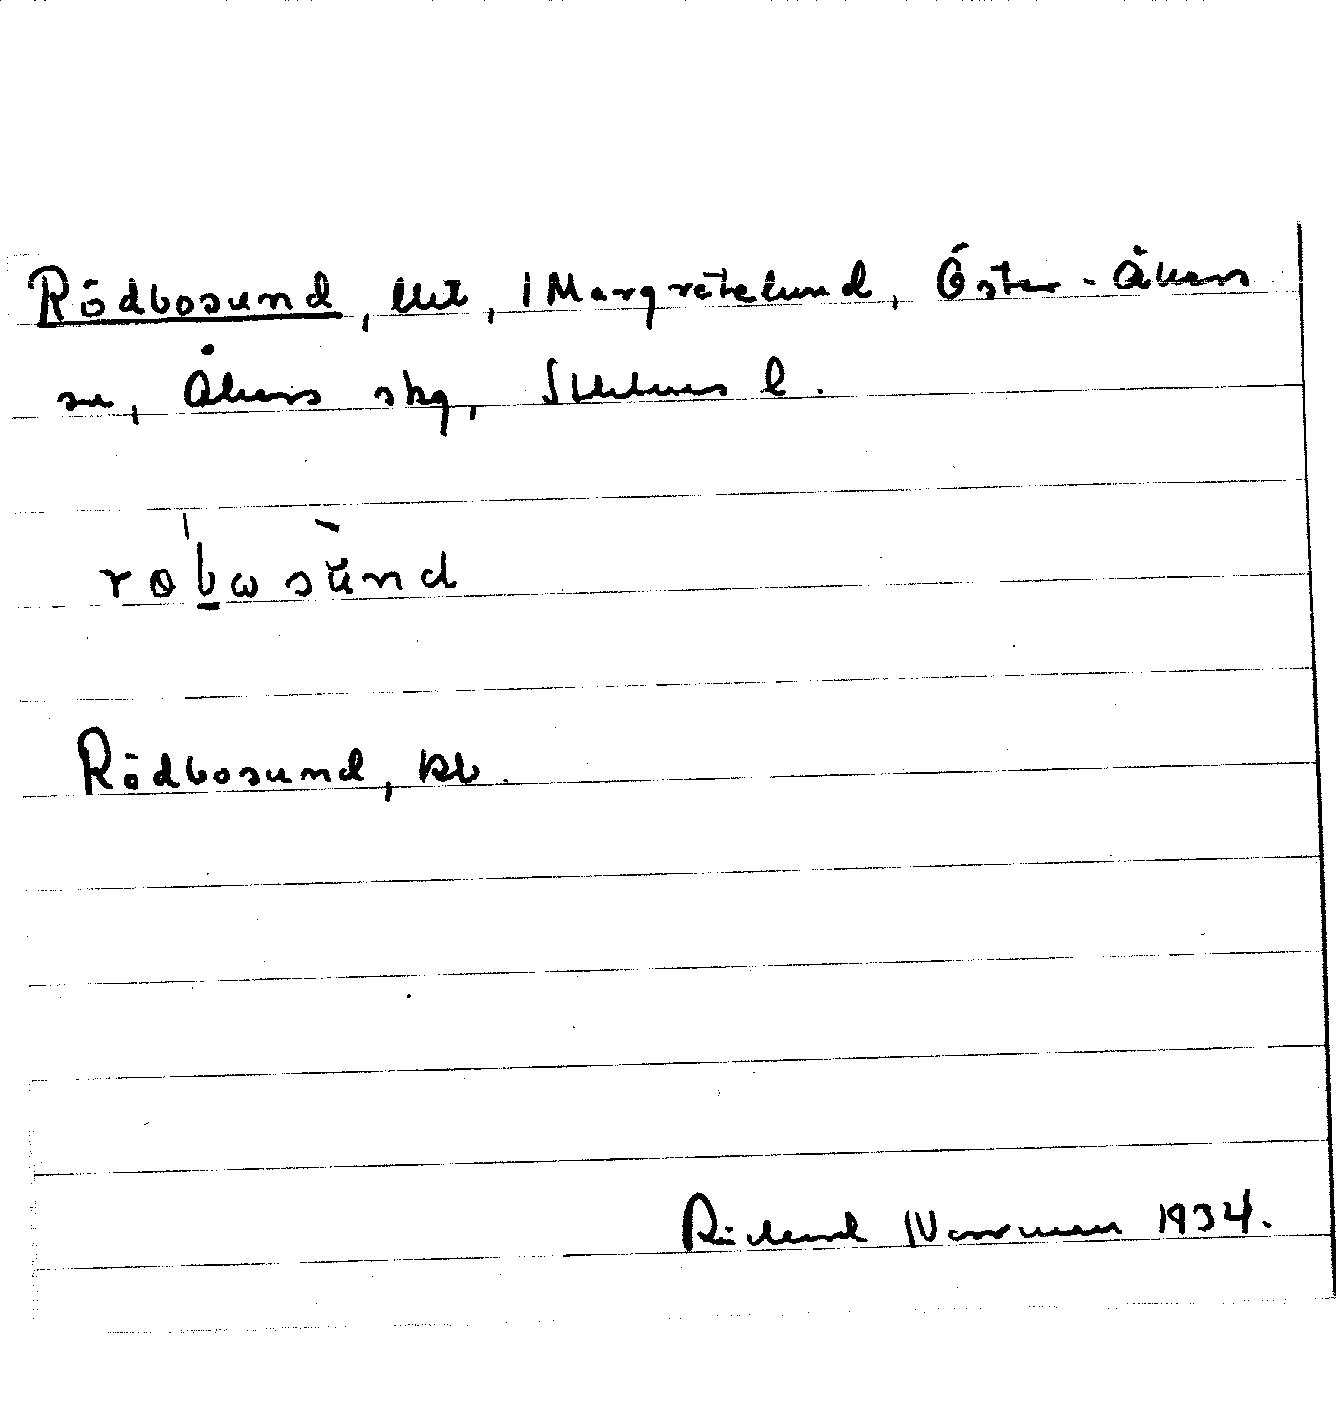 Rödbosund, lht, Margretelund, Öster-Åkers
sn, Åkers skg, Sthlms l.
robωsund
Rödbosund, kb.
Rickard Norrman 1934.